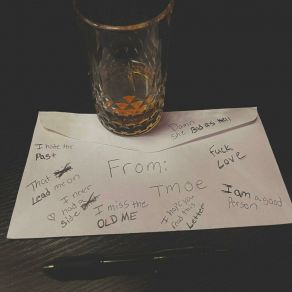 I hate the
Past
Damn
she Bad as hell
From:
Tmoe
Fuck
Love
That
Lead me on
I never
had a
side
I miss the
OLD ME
I hope you
read this
Letter
I am a good
Person